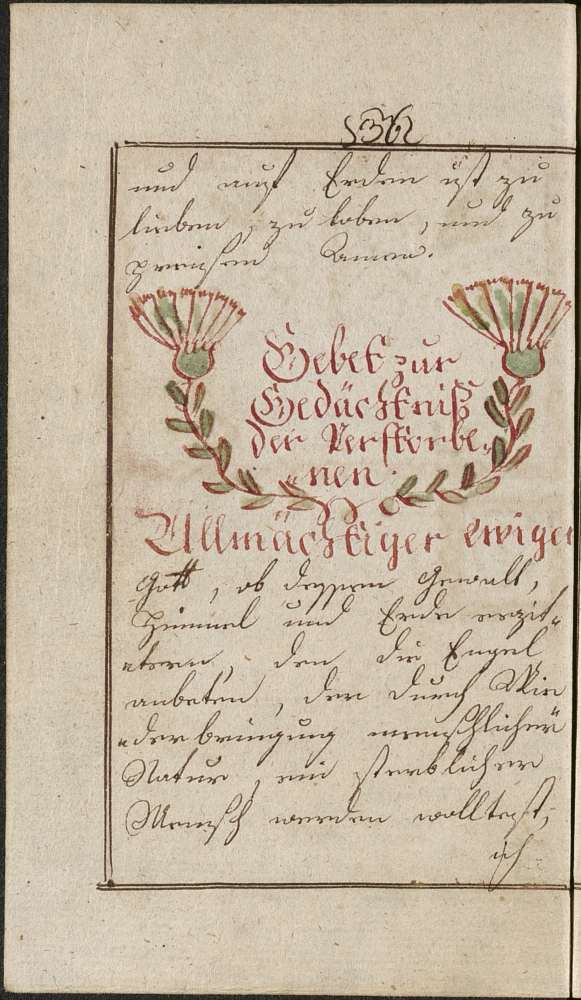 136
und auf Erden ist zu
lieben, zu loben, und zu
preisen Amen.
Gebet zur
Gedächtniß
der Verstorbe„
„nen.
Allmächtiger ewiger
Gott, ob dessen Gewalt,
Himmel und Erde erzit„
„tern, den die Engel
anbeten, der durch Wie
„derbringung menschlicher
Natur, ein sterblicher
Mensch werden wolltest;
ich